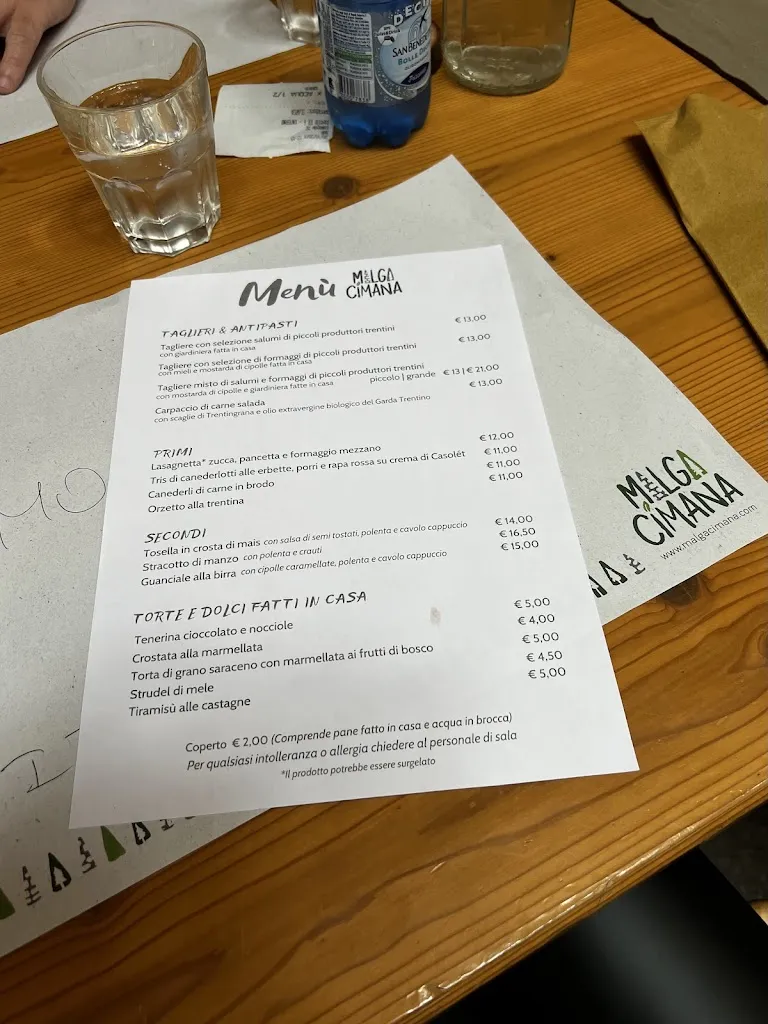 DECO
SAN BENEDETTO
× ACQUA 1/2
Menù MALGA CIMANA
TAGLIERI & ANTIPASTI
Tagliere con selezione salumi di piccoli produttori trentini € 13,00
con giardiniera fatta in casa
Tagliere con selezione di formaggi di piccoli produttori trentini € 13,00
con mieli e mostarda di cipolle fatta in casa
Tagliere misto di salumi e formaggi di piccoli produttori trentini
con mostarda di cipolle e giardiniera fatte in casa piccolo | grande € 13 | € 21,00
Carpaccio di carne salada € 13,00
con scaglie di Trentingrana e olio extravergine biologico del Garda Trentino
PRIMI
Lasagnetta* zucca, pancetta e formaggio mezzano € 12,00
Tris di canederlotti alle erbette, porri e rapa rossa su crema di Casolét € 11,00
Canederli di carne in brodo € 11,00
Orzetto alla trentina € 11,00
SECONDI
Tosella in crosta di mais con salsa di semi tostati, polenta e cavolo cappuccio € 14,00
Stracotto di manzo con polenta e crauti € 16,50
Guanciale alla birra con cipolle caramellate, polenta e cavolo cappuccio € 15,00
TORTE E DOLCI FATTI IN CASA
Tenerina cioccolato e nocciole € 5,00
Crostata alla marmellata € 4,00
Torta di grano saraceno con marmellata ai frutti di bosco € 5,00
Strudel di mele € 4,50
Tiramisù alle castagne € 5,00
Coperto € 2,00 (Comprende pane fatto in casa e acqua in brocca)
Per qualsiasi intolleranza o allergia chiedere al personale di sala
*Il prodotto potrebbe essere surgelato
MALGA
CIMANA
www.malgacimana.com